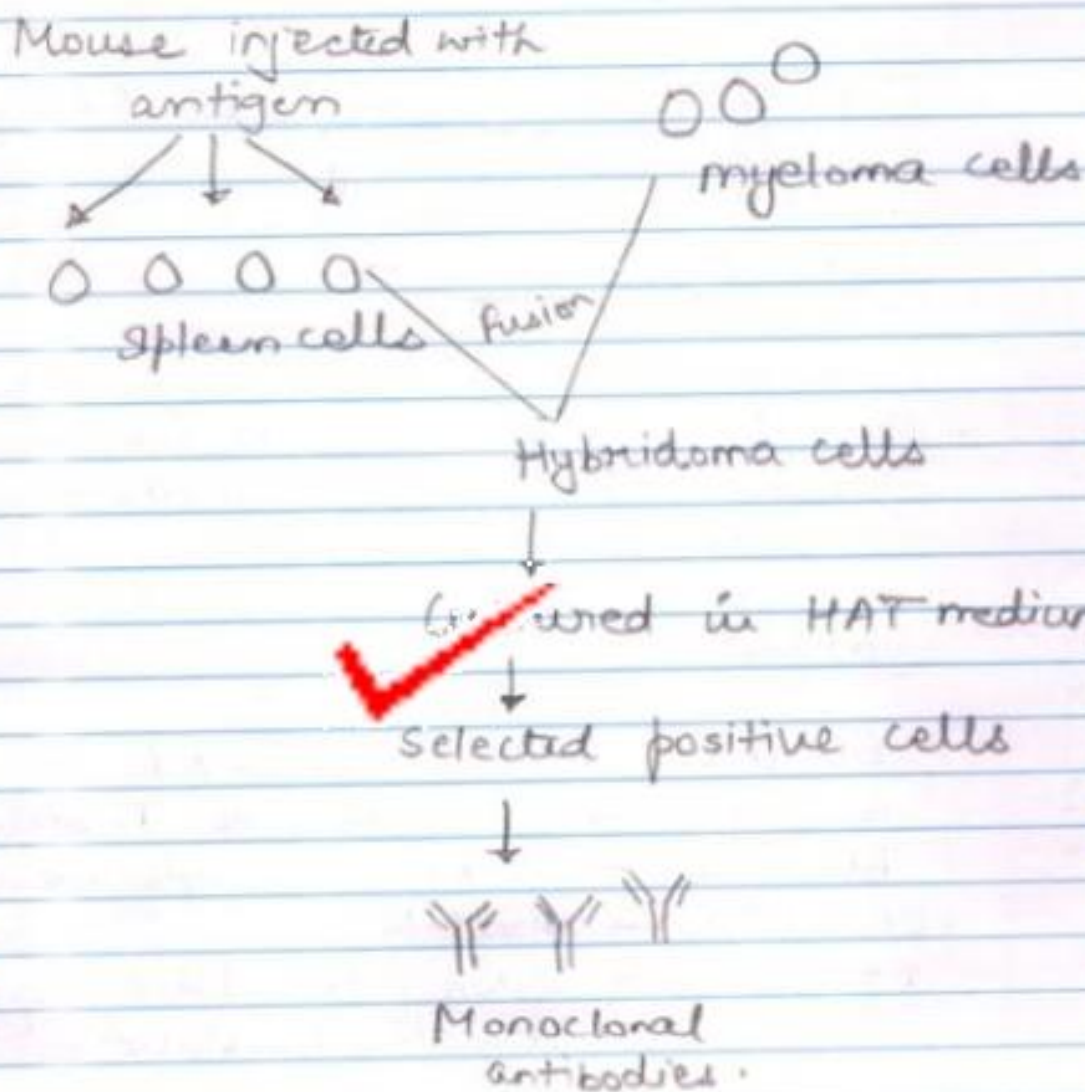 Mouse injected with
antigen
myeloma cells
Spleen cells
fusion
Hybridoma cells
in HAT medium
Selected positive cells
Monoclonal
antibodies.